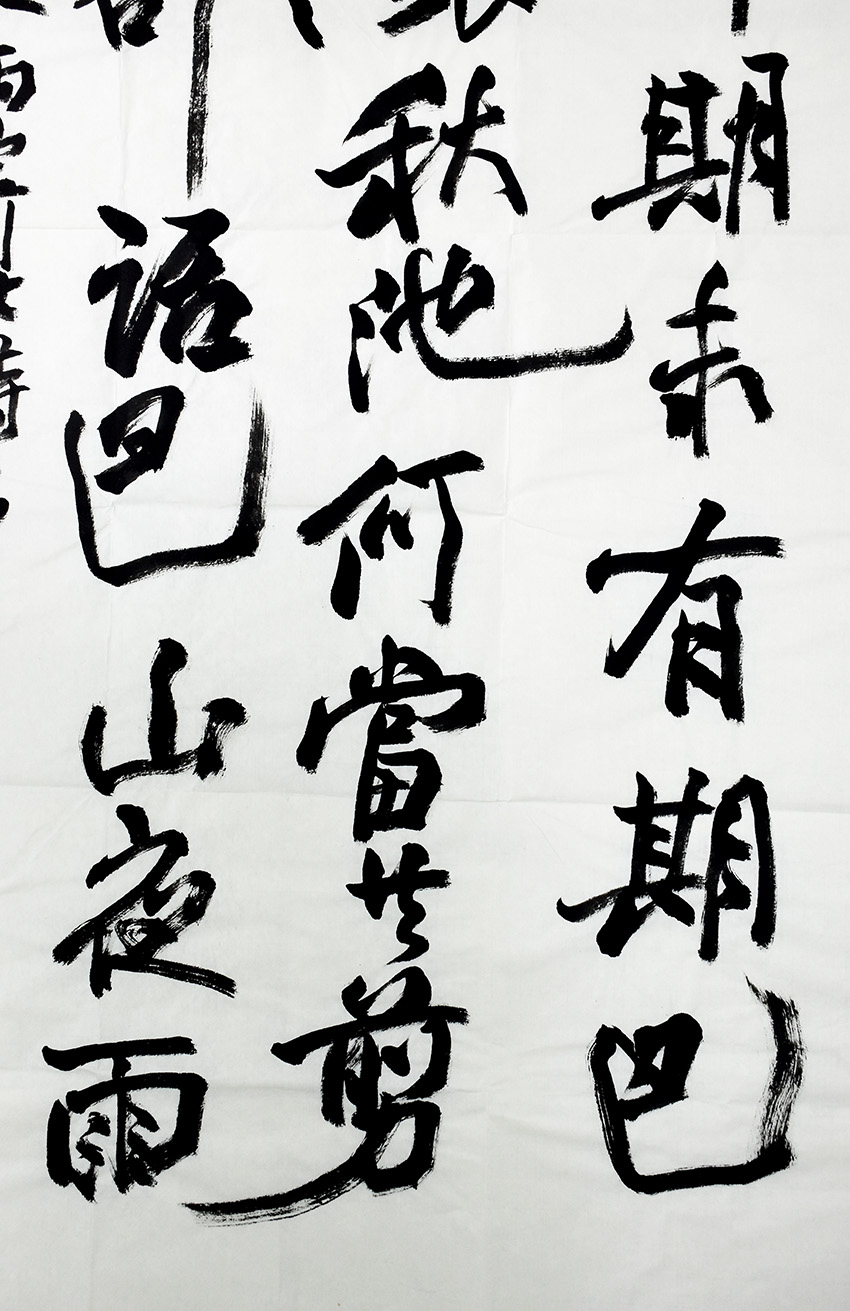 期未有期巴
秋池何當共剪
话巴山夜雨